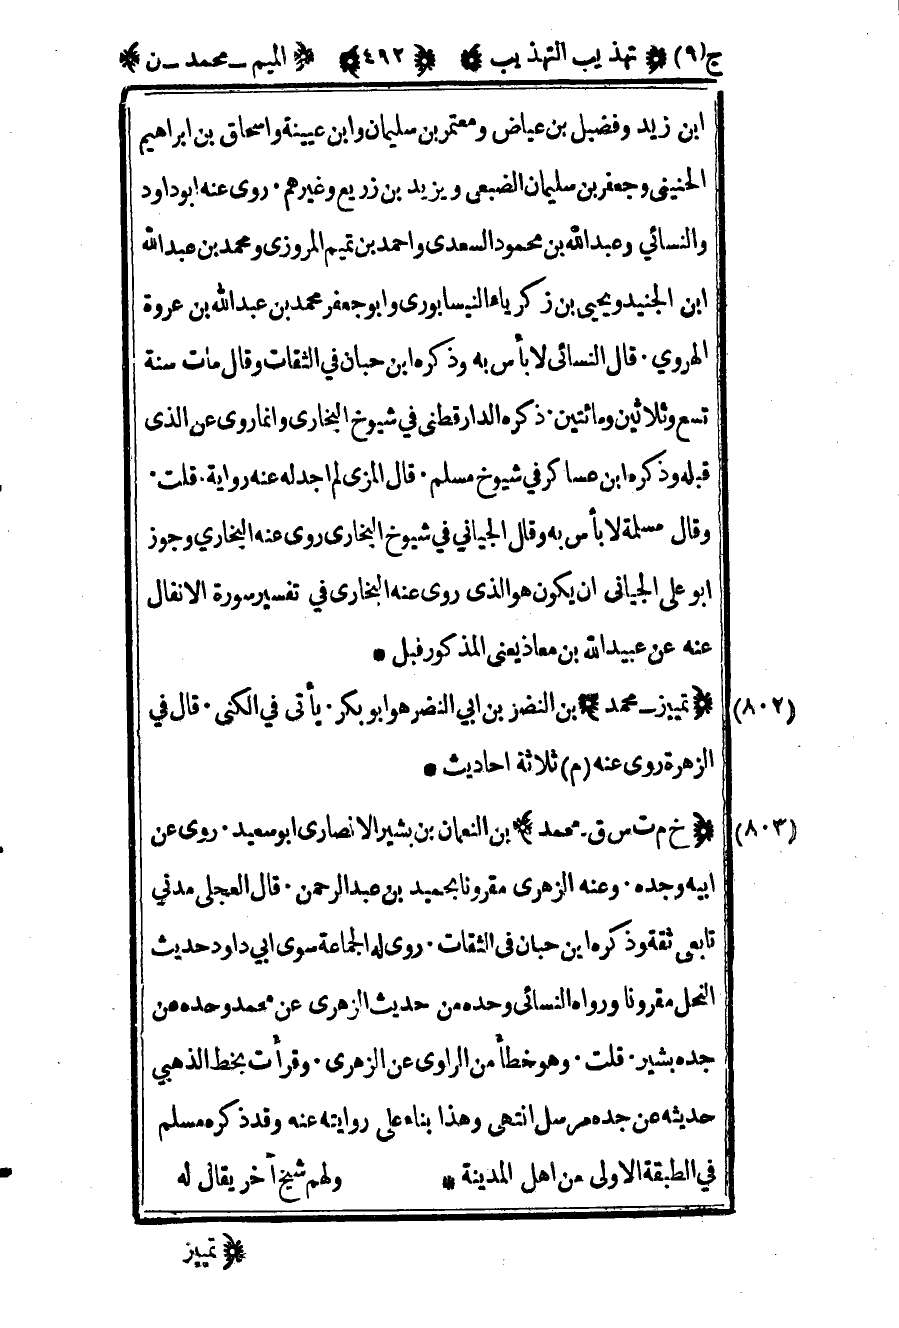 ج(٩) ﴿ تهذيب التهذيب ﴾ ﴿ ٤٩٢ ﴾ ﴿ الميم ـ محمد ـ ن ﴾
ابن زيد وفضيل بن عياض ومعتمر بن سليمان وابن عيينة واسحاق بن ابراهيم
الحنيني وجعفر بن سليمان الضبعى ويزيد بن زريع وغيرهم · روى عنه ابوداود
والنسائي وعبدالله بن محمود السعدى واحمد بن تميم المروزى ومحمد بن عبدالله
ابن الجنيد ويحيى بن زكرياء النيسابورى وابوجعفر محمد بن عبدالله بن عروة
الهروي · قال النسائى لا بأس به وذكره ابن حبان في الثقات وقال مات سنة
تسع وثلاثين ومائتين · ذكره الدارقطنى في شيوخ البخارى وانما روى عن الذى
قبله وذكره ابن عساكر في شيوخ مسلم · قال المزى لم اجد له عنه رواية · قلت ·
وقال مسلمة لا بأس به وقال الجياني في شيوخ البخارى روى عنه البخاري وجوز
ابو على الجيانى ان يكون هو الذى روى عنه البخارى في تفسير سورة الانفال
عنه عن عبيدالله بن معاذ يعنى المذكور قبل *
(٨٠٢) ﴿ تمييز ـ محمد ﴾ بن النضر بن ابي النضر هو ابو بكر · يأتى في الكنى · قال في
الزهرة روى عنه (م) ثلاثة احاديث *
(٨٠٣) ﴿ خ م ت س ق ـ محمد ﴾ بن النعمان بن بشير الانصارى ابو سعيد · روى عن
ابيه وجده · وعنه الزهرى مقرونا بحميد بن عبدالرحمن · قال العجلى مدني
تابعي ثقة وذكره ابن حبان فى الثقات · روى له الجماعة سوى ابي داود حديث
النحل مقرونا ورواه النسائى وحده من حديث الزهرى عن محمد وحده عن
جده بشير · قلت · وهو خطأ من الراوى عن الزهرى · وقرأت بخط الذهبي
حديثه عن جده مرسل انتهى وهذا بناء على روايته عنه وقد ذكره مسلم
في الطبقة الاولى من اهل المدينة * ولهم شيخ آخر يقال له
﴿ تمييز